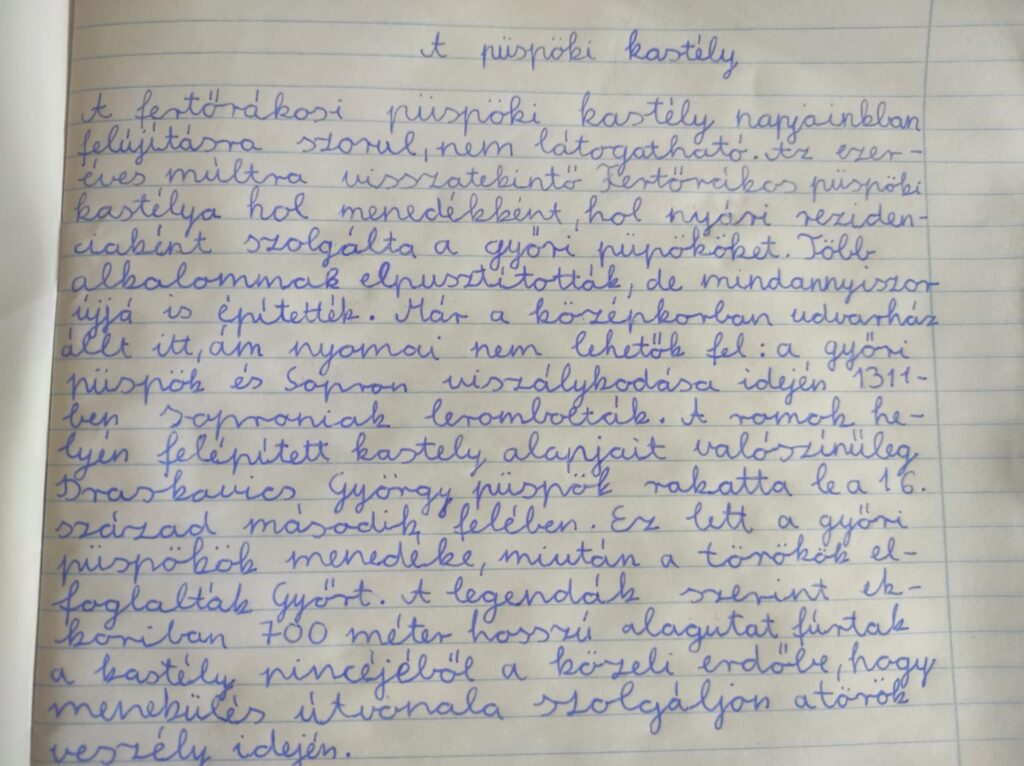 A püspöki kastély
A fertőrákosi püspöki kastély napjainkban
felújításra szorul, nem látogatható. Az ezer-
éves múltra visszatekintő Fertőrákos püspöki
kastélya hol menedékként, hol nyári reziden-
ciaként szolgálta a győri püpököket. Több
alkalommak elpusztították, de mindannyiszor
újjá is építették. Már a középkorban udvarház
állt itt, ám nyomai nem lehetők fel: a győri
püspök és Sopron viszálykodása idején 1311-
ben soproniak lerombolták. A romok he-
lyén felépített kastely alapjait valószínűleg
Draskavics György püspök rakatta le a 16.
század második felében. Ez lett a győri
püspökök menedéke, miután a törökök el-
foglalták Győrt. A legendák szerint ek-
koriban 700 méter hosszú alagutat fúrtak
a kastély pincéjéből a közeli erdőbe, hogy
menekülés útvonala szolgáljon a török
veszély idején.